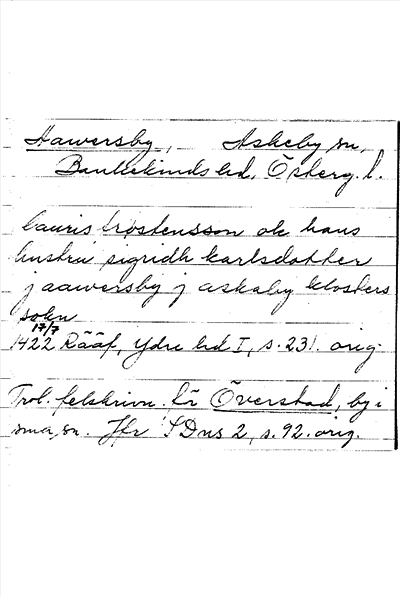 Hawersby, Askeby sn,
Bankekinds hd, Österg. l.
lauris trostensson ok hans
hustru sigridh karlsdotther
j aawersby j askaby klosters
sokn
17/7
1422 Rääf, Ydre hd I, s. 231. orig.
Trol. felskrivn. för Överstad, by i
sma, sn. Jfr SDns 2, s. 92. orig.